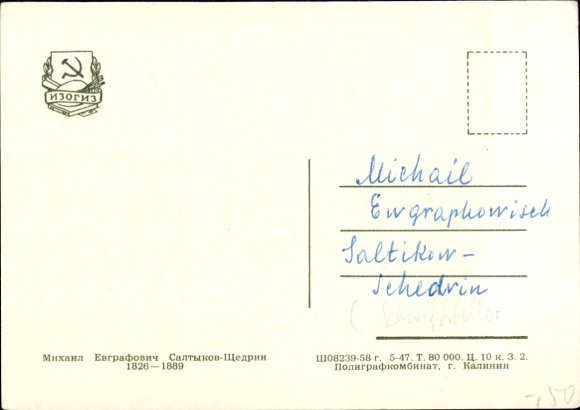 ИЗОГИЗ
Michail
Ewgraphowisch
Saltikow-
Schedrin
Михаил Евграфович Салтыков-Щедрин
1826—1889
Ш08239-58 г. 5-47. Т. 80 000. Ц. 10 к. З. 2.
Полиграфкомбинат, г. Калинин